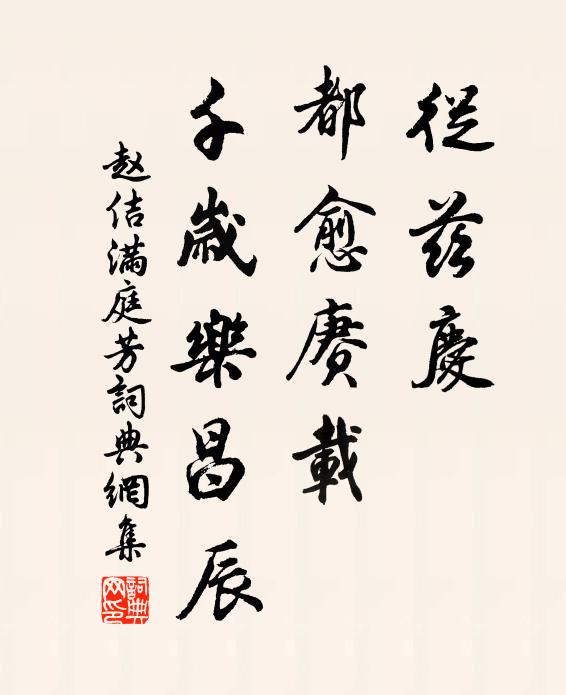 從茲慶
都愈賡載
千歲樂昌辰
赵佶滿庭芳詞典網集
詞典
网印